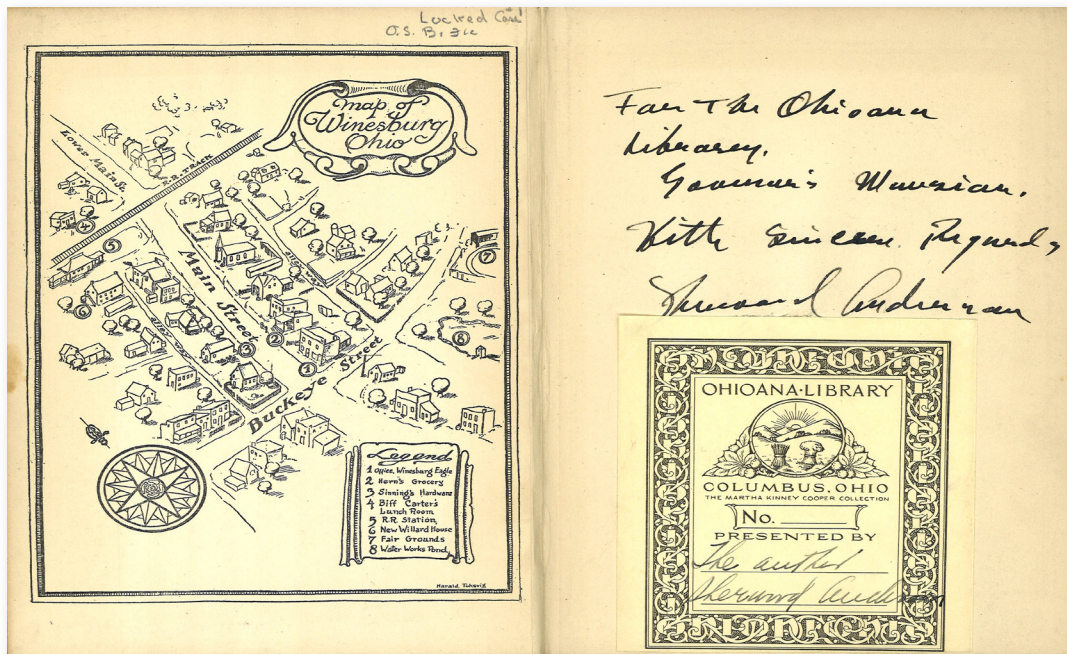 Locked Case
O.S. B.
map of
Winesburg
Ohio
Lower Main St.
R.R. TRACK
Main Street
Buckeye Street
4
5
6
7
8
3
2
1
Legend
1 Office, Winesburg Eagle
2 Hern's Grocery
3 Sinning's Hardware
4 Biff Carter's
Lunch Room
5 R.R. Station
6 New Willard House
7 Fair Grounds
8 Water Works Pond
Harald Toksvig
For The Ohioana
Library.
Governor's Mansion.
With Sincere Regards,
Sherwood Anderson
OHIOANA·LIBRARY
COLUMBUS, OHIO
THE MARTHA KINNEY COOPER COLLECTION
No.
PRESENTED BY
The author
Sherwood Anderson